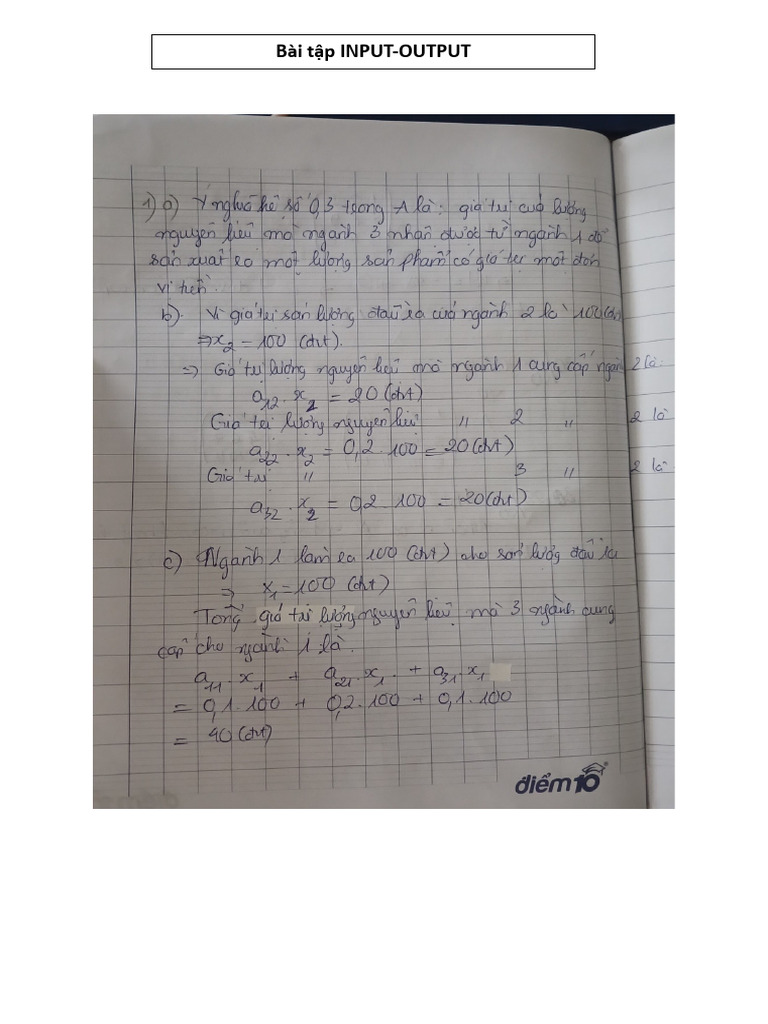 Bài tập INPUT-OUTPUT
1) a) Ý nghĩa hệ số 0,3 trong A là: giá trị của lượng
nguyên liệu mà ngành 3 nhận được từ ngành 1 để
sản xuất ra một lượng sản phẩm có giá trị một đơn
vị tiền.
b). Vì giá trị sản lượng đầu ra của ngành 2 là 100(đvt)
⇒ x₂ = 100 (đvt).
⇒ Giá trị lượng nguyên liệu mà ngành 1 cung cấp ngành 2 là:
a₁₂ . x₂ = 20 (đvt)
Giá trị lượng nguyên liệu " 2 " 2 là
a₂₂ . x₂ = 0,2 . 100 = 20 (đvt)
Giá trị " 3 " 2 là
a₃₂ . x₂ = 0,2 . 100 = 20 (đvt)
c) Ngành 1 làm ra 100 (đvt) cho sản lượng đầu ra
⇒ x₁ = 100 (đvt)
Tổng giá trị lượng nguyên liệu mà 3 ngành cung
cấp cho ngành 1 là.
a₁₁ . x₁ + a₂₁ . x₁ . + a₃₁ . x₁
= 0,1 . 100 + 0,2 . 100 + 0,1 . 100
= 40 (đvt)
điểm10